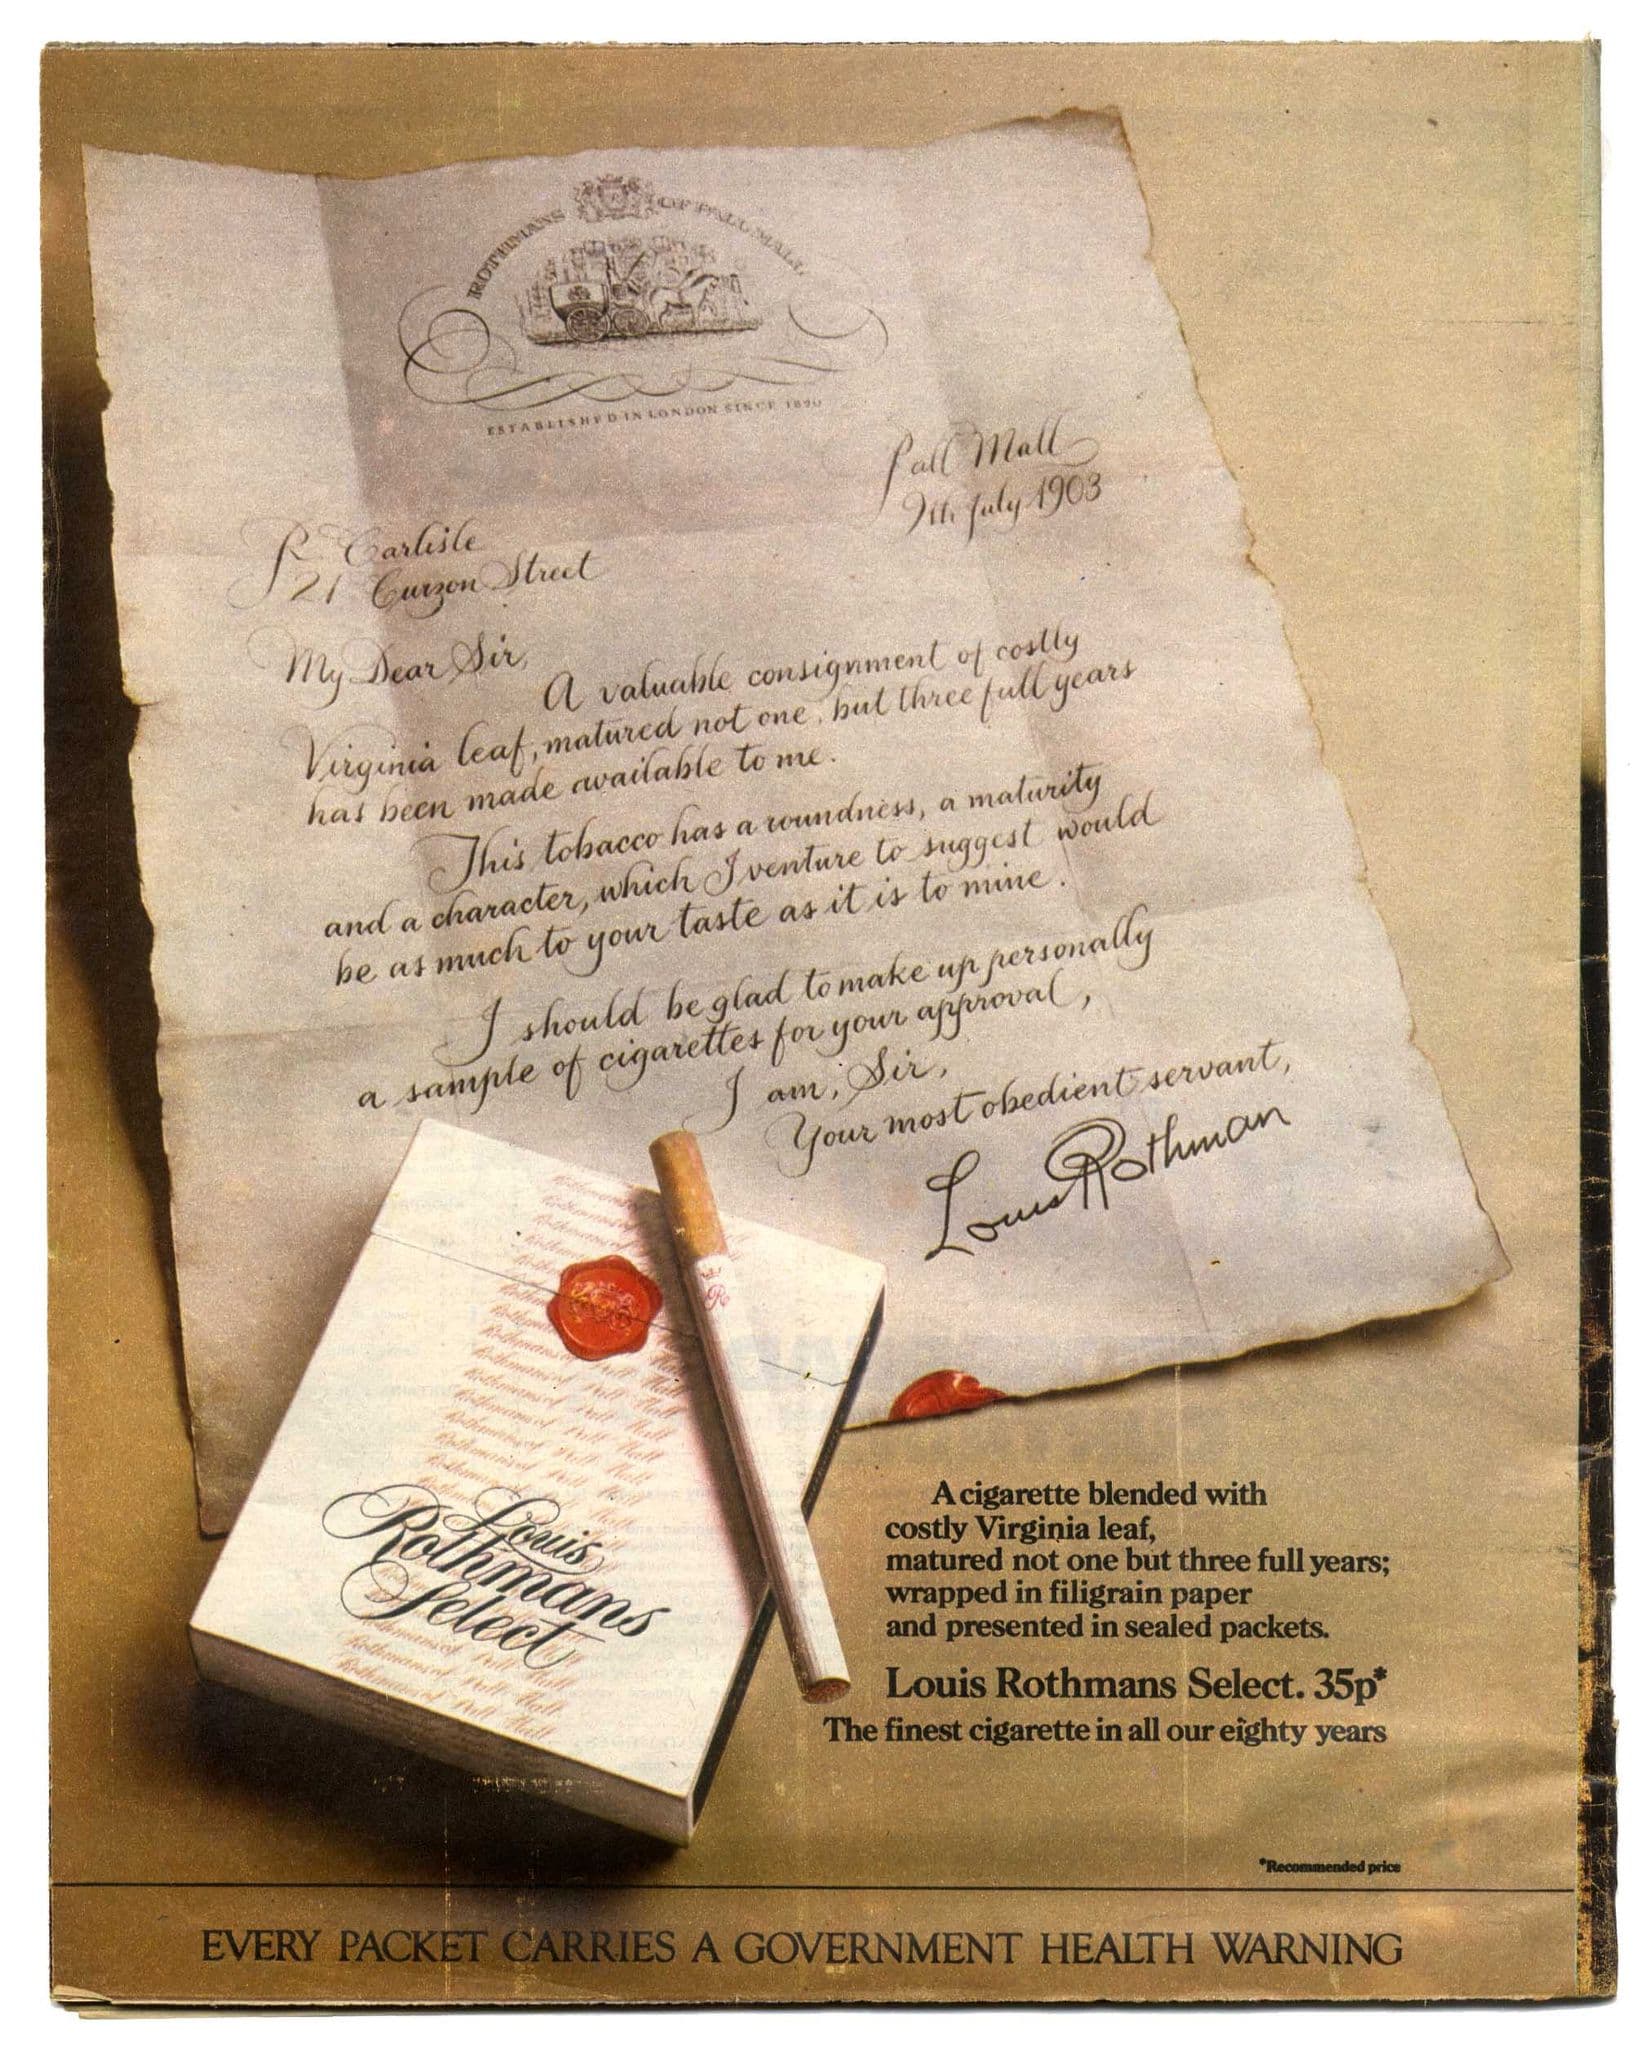 ROTHMANS OF PALL MALL
ESTABLISHED IN LONDON SINCE 1890
Pall Mall
9th July 1903
R Carlisle
21 Curzon Street
My Dear Sir,
A valuable consignment of costly
Virginia leaf, matured not one, but three full years
has been made available to me.
This tobacco has a roundness, a maturity
and a character, which I venture to suggest would
be as much to your taste as it is to mine.
I should be glad to make up personally
a sample of cigarettes for your approval,
I am, Sir,
Your most obedient servant,
Louis Rothman
Rothmans of Pall Mall
Rothmans of Pall Mall
Rothmans of Pall Mall
Rothmans of Pall Mall
Louis
Rothmans
Select
A cigarette blended with
costly Virginia leaf,
matured not one but three full years;
wrapped in filigrain paper
and presented in sealed packets.
Louis Rothmans Select. 35p*
The finest cigarette in all our eighty years
*Recommended price
EVERY PACKET CARRIES A GOVERNMENT HEALTH WARNING